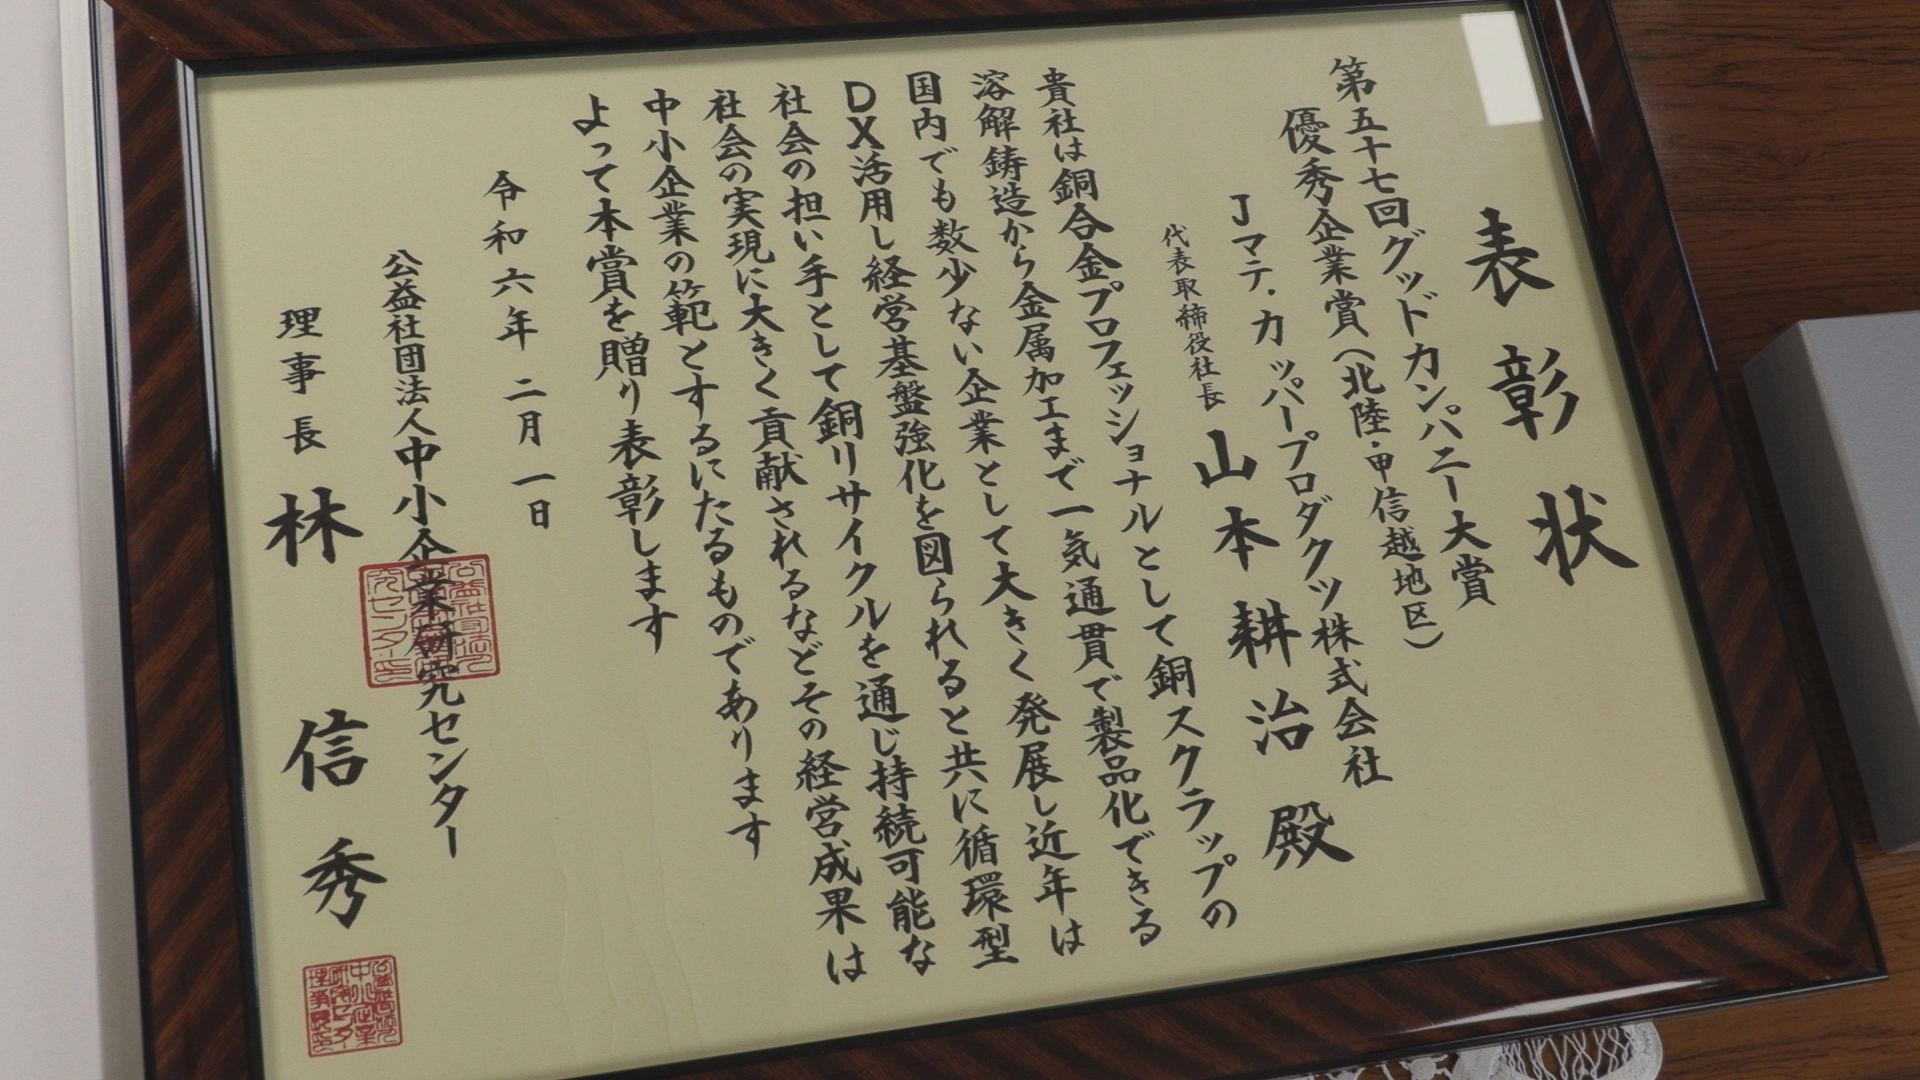 表彰状
第五十七回グッドカンパニー大賞
優秀企業賞(北陸・甲信越地区)
Jマテ.カッパープロダクツ株式会社
代表取締役社長 山本耕治殿
貴社は銅合金プロフェッショナルとして銅スクラップの
溶解鋳造から金属加工まで一気通貫で製品化できる
国内でも数少ない企業として大きく発展し近年は
DX活用し経営基盤強化を図られると共に循環型
社会の担い手として銅リサイクルを通じ持続可能な
社会の実現に大きく貢献されるなどその経営成果は
中小企業の範とするにたるものであります
よって本賞を贈り表彰します
令和六年二月一日
公益社団法人中小企業研究センター
理事長 林信秀